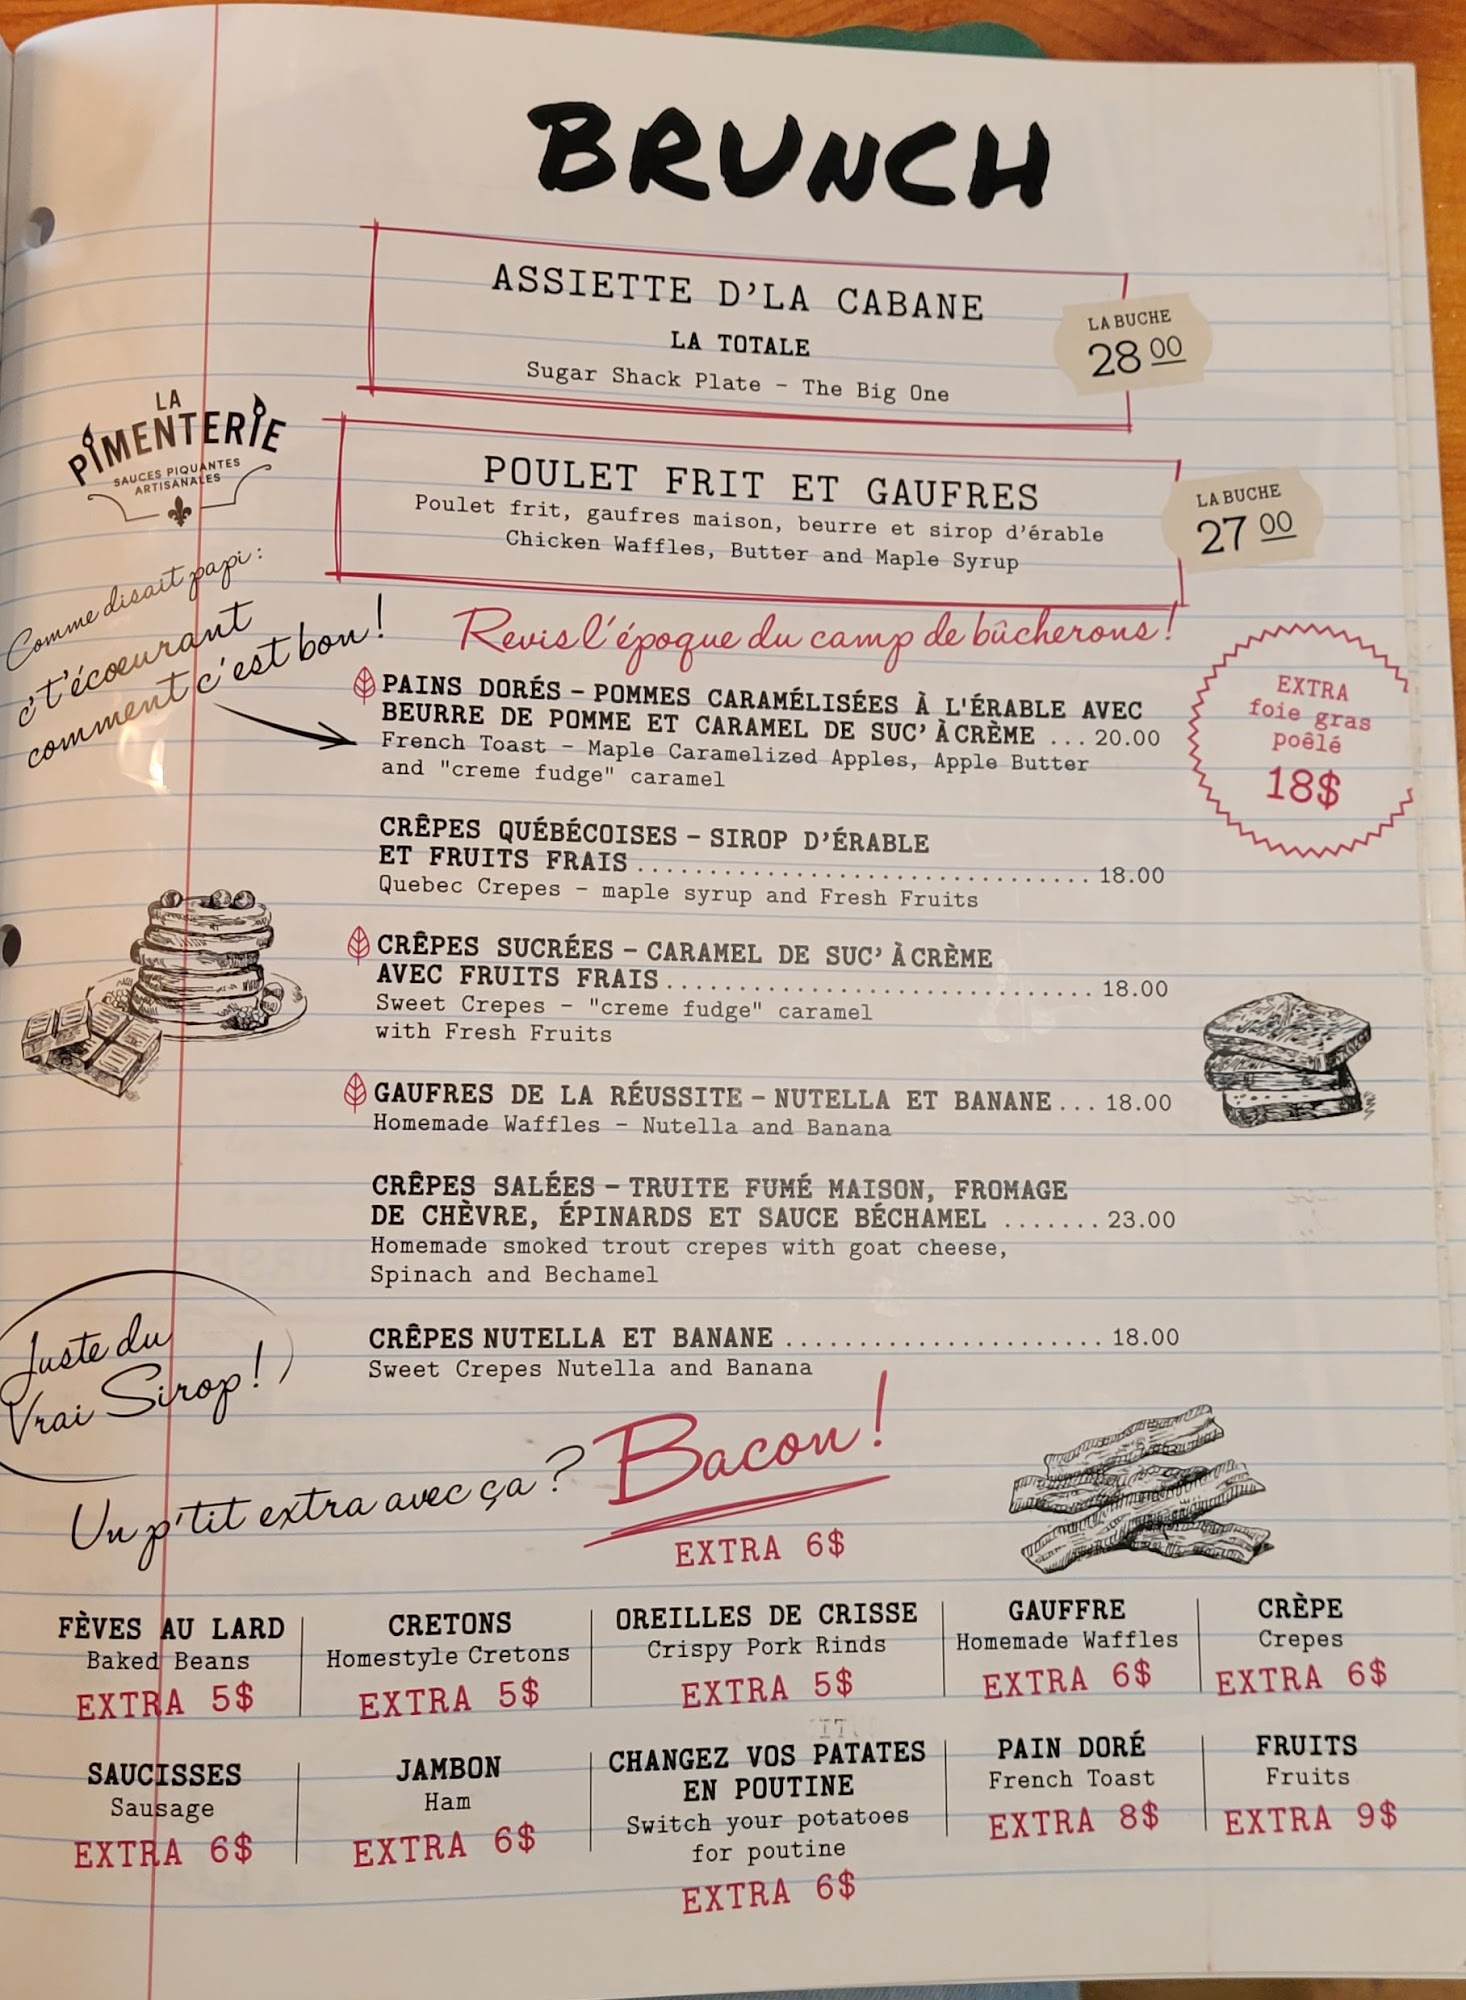 BRUNCH
ASSIETTE D'LA CABANE
LA TOTALE
Sugar Shack Plate – The Big One
LA BUCHE
28 00
LA
PIMENTERIE
SAUCES PIQUANTES
ARTISANALES
POULET FRIT ET GAUFRES
Poulet frit, gaufres maison, beurre et sirop d'érable
Chicken Waffles, Butter and Maple Syrup
LA BUCHE
27 00
Comme disait papi :
c't'écoeurant
comment c'est bon !
Revis l'époque du camp de bûcherons !
PAINS DORÉS – POMMES CARAMÉLISÉES À L'ÉRABLE AVEC
BEURRE DE POMME ET CARAMEL DE SUC' À CRÈME ... 20.00
French Toast – Maple Caramelized Apples, Apple Butter
and "creme fudge" caramel
EXTRA
foie gras
poêlé
18$
CRÊPES QUÉBÉCOISES – SIROP D'ÉRABLE
ET FRUITS FRAIS .................................. 18.00
Quebec Crepes – maple syrup and Fresh Fruits
CRÊPES SUCRÉES – CARAMEL DE SUC' À CRÈME
AVEC FRUITS FRAIS ................................ 18.00
Sweet Crepes – "creme fudge" caramel
with Fresh Fruits
GAUFRES DE LA RÉUSSITE – NUTELLA ET BANANE ... 18.00
Homemade Waffles – Nutella and Banana
CRÊPES SALÉES – TRUITE FUMÉ MAISON, FROMAGE
DE CHÈVRE, ÉPINARDS ET SAUCE BÉCHAMEL ....... 23.00
Homemade smoked trout crepes with goat cheese,
Spinach and Bechamel
CRÊPES NUTELLA ET BANANE ........................ 18.00
Sweet Crepes Nutella and Banana
Juste du
Vrai Sirop !
Un p'tit extra avec ça ? Bacon !
EXTRA 6$
FÈVES AU LARD
Baked Beans
EXTRA 5$
CRETONS
Homestyle Cretons
EXTRA 5$
OREILLES DE CRISSE
Crispy Pork Rinds
EXTRA 5$
GAUFFRE
Homemade Waffles
EXTRA 6$
CRÈPE
Crepes
EXTRA 6$
SAUCISSES
Sausage
EXTRA 6$
JAMBON
Ham
EXTRA 6$
CHANGEZ VOS PATATES
EN POUTINE
Switch your potatoes
for poutine
EXTRA 6$
PAIN DORÉ
French Toast
EXTRA 8$
FRUITS
Fruits
EXTRA 9$